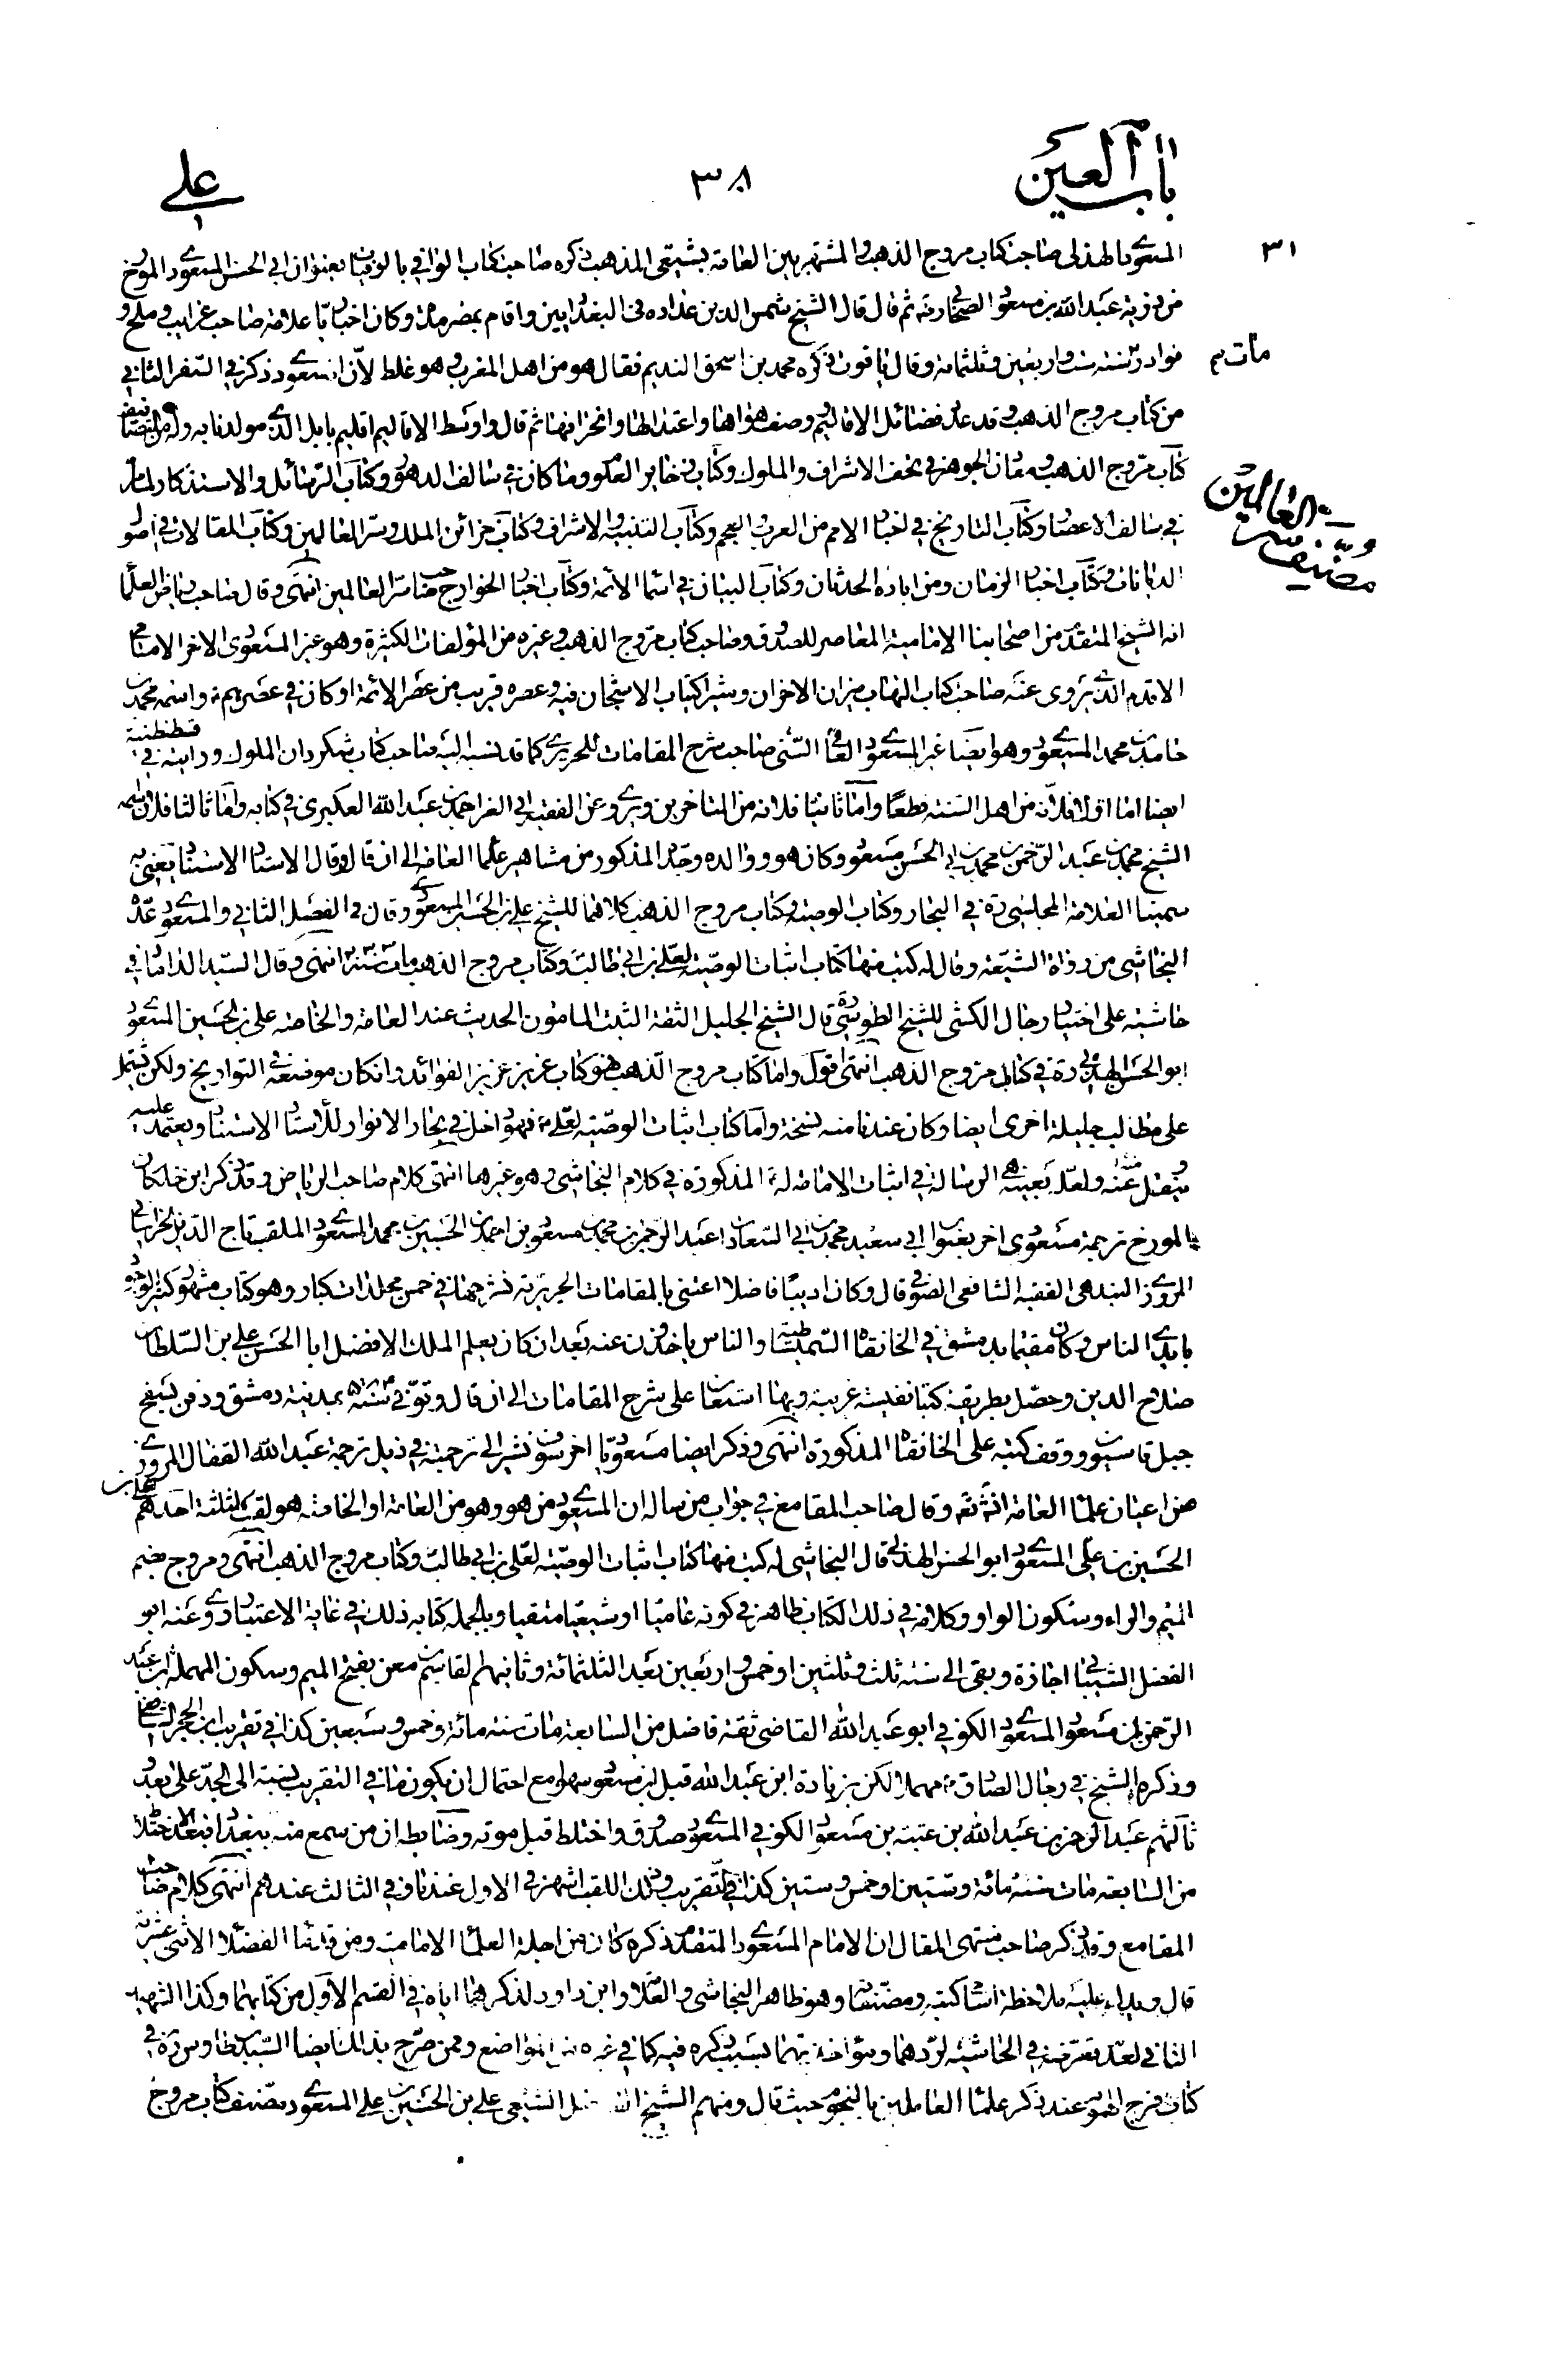 باب العين
٣٨
علي
المسعودي الهذلي صاحب كتاب مروج الذهب والمشتهر بين العامة بشيعي المذهب ذكره صاحب كتاب الوافي بالوفيات بعنوان ابي الحسن المسعودي المورخ
من ذرية عبد الله بن مسعود الصحابي ثم قال قال الشيخ شمس الدين عداده في البغداديين واقام بمصر مدة وكان اخباريا علامة صاحب غرايب وملح و
نوادر سنة ست واربعين وثلثمائة وقال ياقوت ذكره محمد بن اسحق النديم فقال هو من اهل المغرب وهو غلط لأن المسعودي ذكر في السفر الثاني
مات م
من كتاب مروج الذهب وقد عد فضائل الاقاليم ووصف هوائها واعتدالها وانحرافها ثم قال واوسط الاقاليم اقليم بابل الذي مولدنا به وله من التصانيف
كتاب مروج الذهب ومعادن الجوهر في تحف الاشراف والملوك وكتاب ذخاير العلوم وما كان في سالف الدهور وكتاب الرسائل والاستذكار لما مر
في سالف الاعصار وكتاب التاريخ في اخبار الامم من العرب والعجم وكتاب التنبيه والاشراف وكتاب خزائن الملك وسر العالمين وكتاب المقالات في اصول
الديانات وكتاب اخبار الزمان ومن اباده الحدثان وكتاب البيان في اسماء الأئمة وكتاب اخبار الخوارج صاحب سر العالمين انتهى وقال صاحب رياض العلماء
انه الشيخ المتقدم من اصحابنا الامامية المعاصر للصدوق وصاحب كتاب مروج الذهب وغيره من المؤلفات الكثيرة وهو غير المسعودي الاخر الامامي
الاقدم الذي يروى عنه صاحب كتاب ميزان الاخوان وعصره قريب من عصر الأئمة او كان في عصرهم واسمه محمد بن
حامد بن محمد المسعودي وهو ايضا غير المسعودي العامي السني صاحب شرح المقامات للحريري كما قد نسبه اليه صاحب كتاب سكردان الملوك ورايته في قسطنطنية
ايضا اما اولا فلانه من اهل السنة قطعا واما ثانيا فلانه من المتاخرين ويروي عن الفقيه احمد بن عبد الله العكبري في كتابه واما ثالثا فلان اسمه
الشيخ محمد بن عبد الرحمن بن محمد بن ابي الحسن مسعود وكان هو ووالده وجده المذكور من مشاهير علماء العامة الى ان قال وقال الاستاد الاستناد يعني به
سمينا العلامة المجلسي ره في البحار وكتاب الوصية وكتاب مروج الذهب كلاهما للشيخ علي بن الحسين المسعودي وقال في الفصل الثاني والمسعودي عده
النجاشي من رواة الشيعة وقال له كتب منها كتاب اثبات الوصية لعلي بن ابي طالب وكتاب مروج الذهب مات سنة انتهى وقال السيد الداماد في
حاشيته على اختيار رجال الكشي للشيخ الطوسي ره قال الشيخ الجليل الثقة الثبت المامون الحديث عند العامة والخاصة علي بن الحسين المسعودي
ابو الحسن الهذلي ره في كتابه مروج الذهب انتهى اقول واما كتاب مروج الذهب فهو كتاب عزيز غزير الفوائد وان كان موضوعه في التواريخ ولكن يشتمل
على مطالب جليلة اخرى ايضا وكان عندنا منه نسخة واما كتاب اثبات الوصية لعلي ع فهو داخل في بحار الانوار للأستاد الاستناد ويعتمد عليه
وينقل عنه ولعله بعينه هي الرسالة في اثبات الامامة له ع المذكورة في كلام النجاشي وهو غيرها انتهى كلام صاحب الرياض وقد ذكر ابن خلكان
المورخ ترجمة مسعودي اخر بعنوان ابي سعيد محمد بن ابي السعادات عبد الرحمن بن محمد بن مسعود بن احمد بن الحسين بن محمد المسعودي الملقب تاج الدين الخراساني
المروزي البندهي الفقيه الشافعي الصوفي قال وكان اديبا فاضلا اعتنى بالمقامات الحريرية فشرحها في خمس مجلدات كبار وهو كتاب مشهور كثير الوجود
بايدي الناس وكان مقيما بدمشق في الخانقاه السميساطية والناس ياخذون عنه بعد ان كان يعلم الملك الافضل ابا الحسن علي بن السلطان
صلاح الدين وحصل بطريقه كتبا نفيسة غريبة وبها استعان على شرح المقامات الى ان قال وتوفي سنة ٥٨٤ بمدينة دمشق ودفن بسفح
جبل قاسيون ووقف كتبه على الخانقاه المذكورة انتهى وذكر ايضا مسعوديا اخر سوف نشير الى ترجمته في ذيل ترجمة عبد الله القفال المروزي
من اعيان علماء العامة انش ثم وقال صاحب المقامع في جواب من ساله ان المسعودي من هو وهو من العامة او الخاصة هو لقب لثلثة احدهم علي بن
الحسين بن علي المسعودي ابو الحسن الهذلي قال النجاشي له كتب منها كتاب اثبات الوصية لعلي بن ابي طالب وكتاب مروج الذهب انتهى ومروج بضم
الميم والراء وسكون الواو وكلامه في ذلك الكتاب ظاهر في كونه عاميا او شيعيا متقيا وبالجملة كتابه ذلك في غاية الاعتبار روى عنه ابو
الفضل الشيباني اجازة وبقي الى سنة ثلث وثلثين او خمس واربعين بعد الثلثمائة وثانيهم القاسم بن معن بفتح الميم وسكون المهملة ابن عبد
الرحمن بن مسعود المسعودي الكوفي ابو عبد الله القاضي ثقة فاضل من السابعة مات سنة مائة وخمس وسبعين كذا في تقريب ابن الحجر
وذكره الشيخ في رجال الصادق ع مهملا لكن بزيادة ابن عبد الله قبل ابن مسعود سهوا مع احتمال ان يكون ما في التقريب نسبة الى الجد على بعد و
ثالثهم عبد الرحمن بن عبد الله بن عتبة بن مسعود الكوفي المسعودي صدوق واختلط قبل موته وضابطه ان من سمع منه ببغداد فبعد الاختلاط
من السابعة مات سنة مائة وستين او خمس وستين كذا في التقريب وذلك اللقب اشهر في الاول عندنا وفي الثالث عندهم انتهى كلام صاحب
المقامع وقد ذكر صاحب منتهى المقال ان الامام المسعودي المتقدم ذكره كان من اجلة العلماء الامامية ومن قدماء الفضلاء الاثنى عشرية
قال ويدل عليه ملاحظة اسامي كتبه ومصنفاته وهو ظاهر النجاشي والعلامة وابن داود لذكرهما اياه في القسم الأول من كتابيهما وكذا الشهيد
الثاني لعدم تعرضه في الحاشية لردهما ومؤاخذتهما بسبب ذكره فيه كما في غيره من المواضع وممن صرح بذلك ايضا السيد بن طاوس ره في
كتاب فرج المهموم عند ذكر علماء العاملين بالنجوم حيث قال ومنهم الشيخ الفاضل الشيعي علي بن الحسين بن علي المسعودي مصنف كتاب مروج